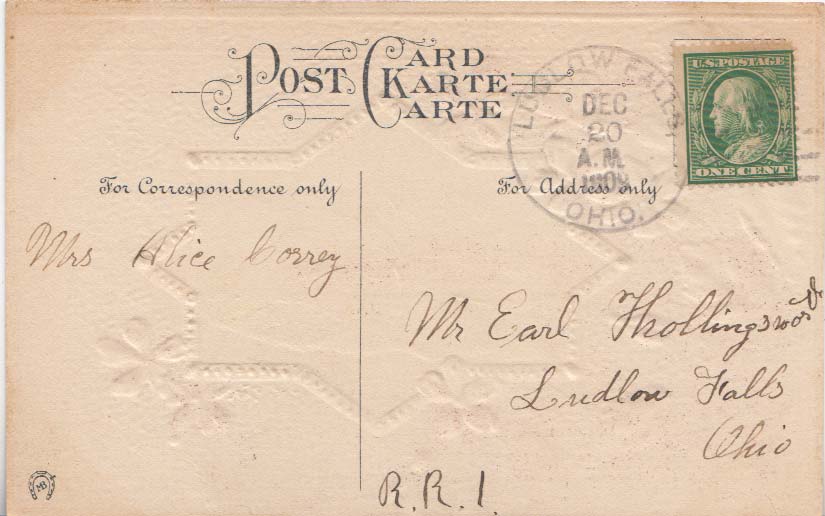 POST CARD
KARTE
CARTE
LUDLOW FALLS
DEC
20
A.M.
OHIO.
U.S. POSTAGE
ONE CENT
For Correspondence only
For Address only
Mrs Alice Correy
Mr Earl Hollingsword
Ludlow Falls
Ohio
R.R.1.
MB